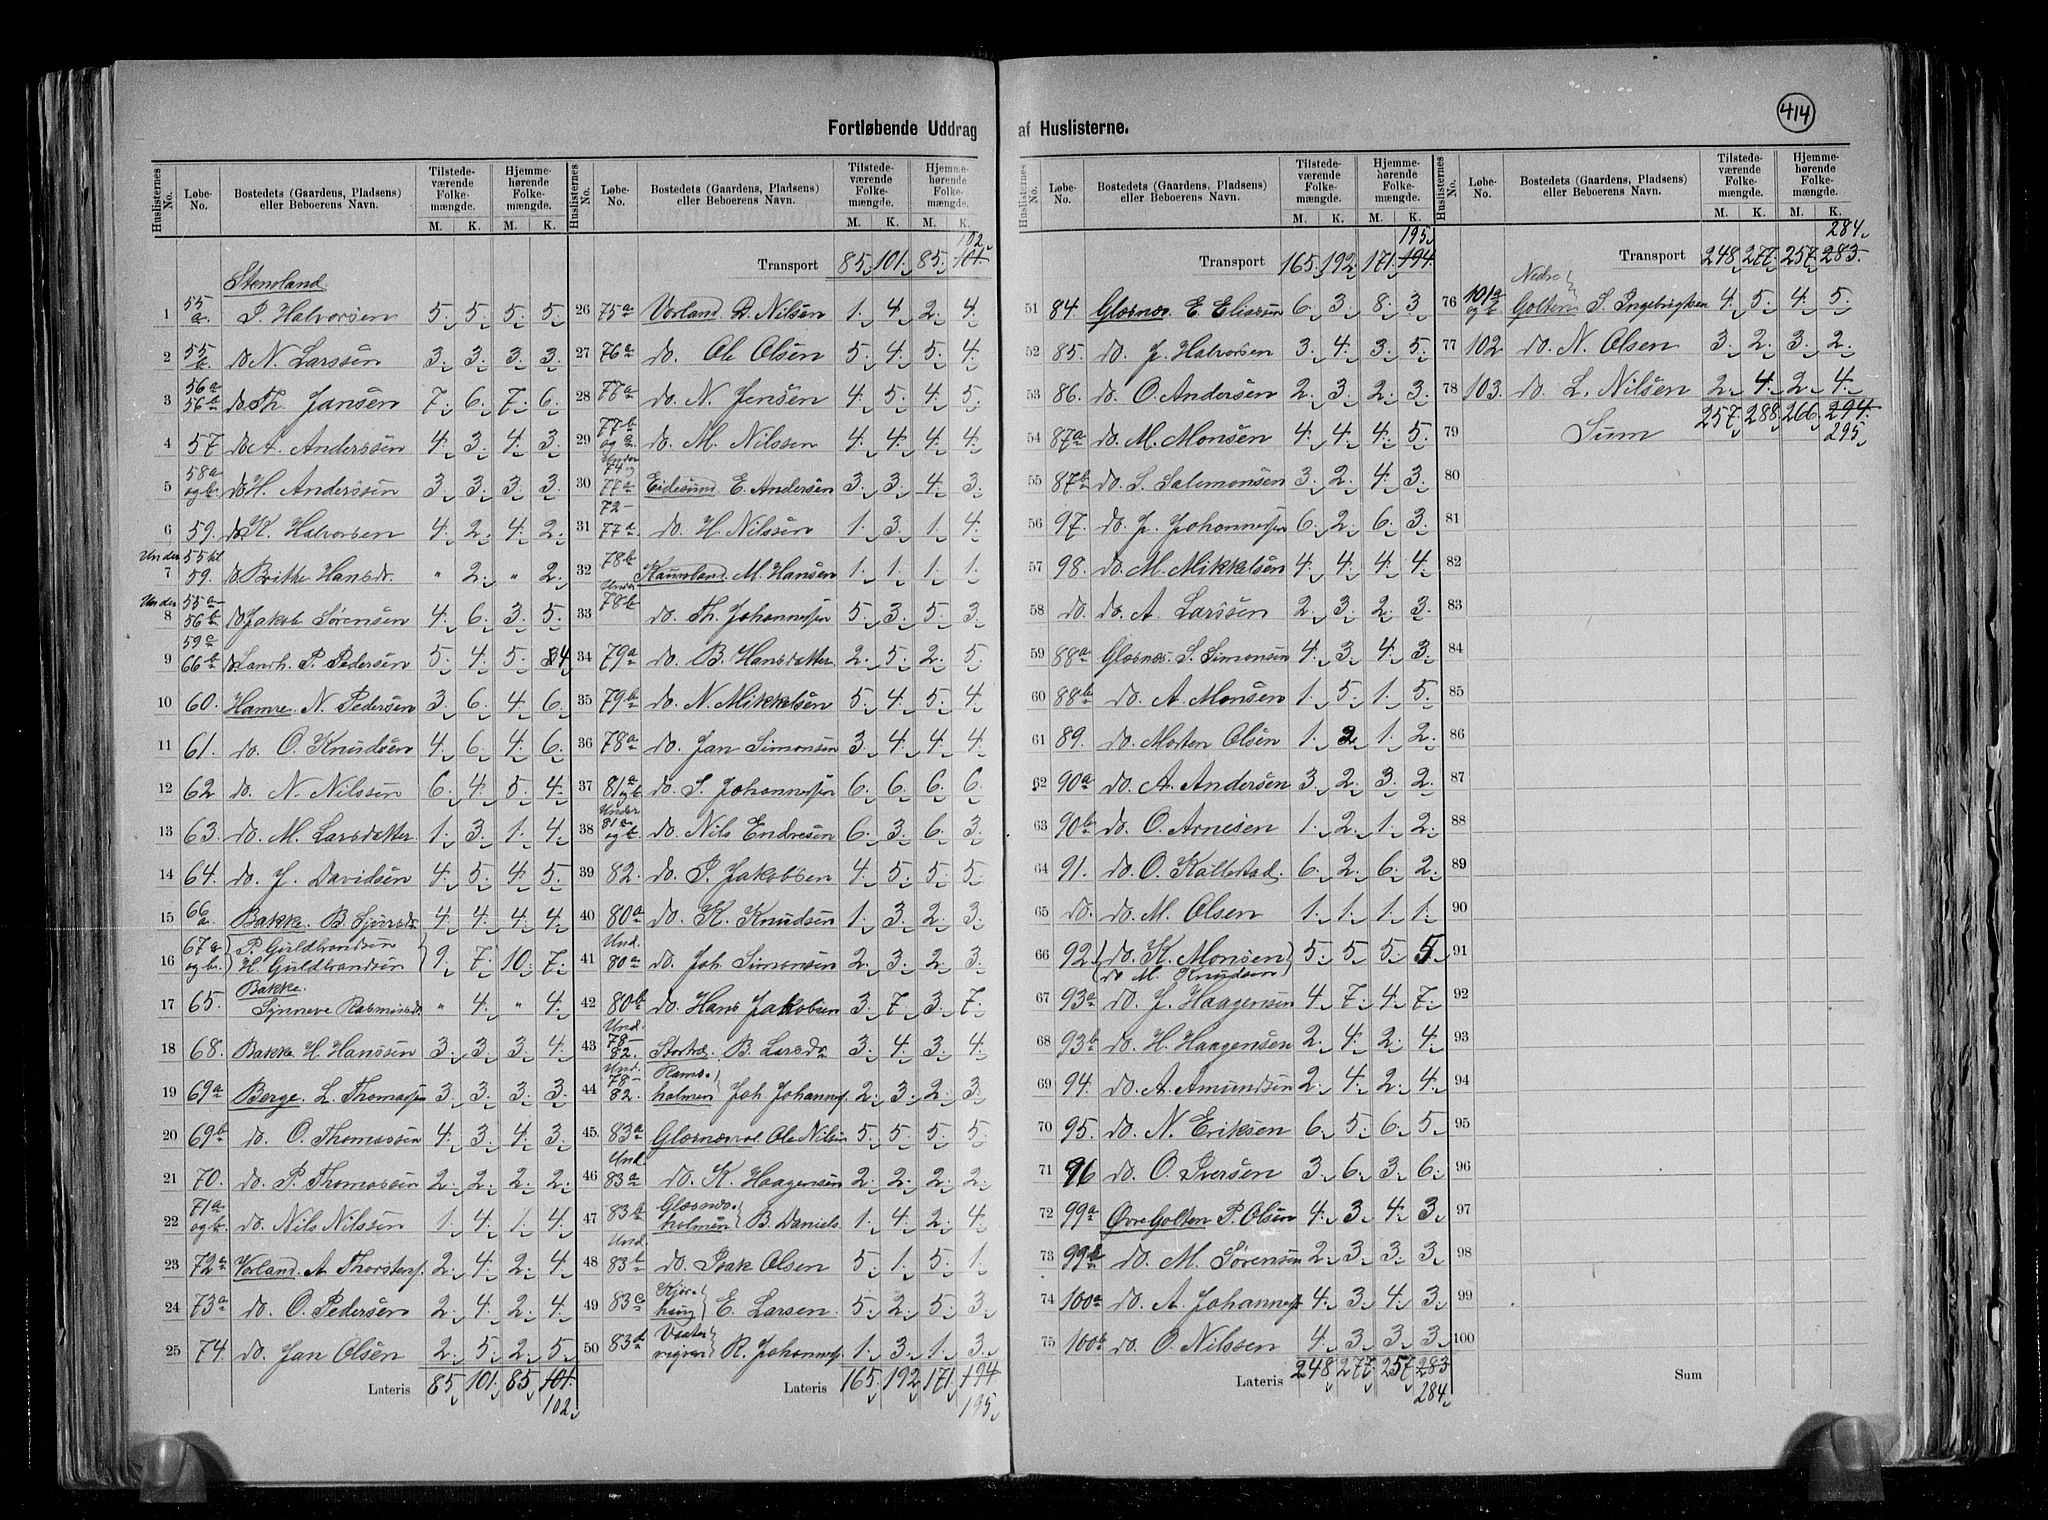 414
Fortløbende Uddrag af Huslisterne.
Huslisternes No. | Løbe-No. | Bostedets (Gaardens, Pladsens) eller Beboerens Navn. | Tilstedeværende Folkemængde. M. K. | Hjemmehørende Folkemængde. M. K.
Stensland
1 55a P. Halvorsen 5. 5. 5. 5.
2 55b do N. Larssen 3. 3. 3. 3.
3 56a 56b do Th. Jansen 7. 6. 7. 6.
4 57 do A. Anderssen 4. 3. 4. 3.
5 58a og b. do H. Andersen 3. 3. 3. 3.
6 59. do K. Halvorsen 4. 2. 4. 2.
7 Under 55 til 59. do Brithe Hansdr. " 2. " 2.
8 Under 55a-56b do Jakob Sørensen 4. 6. 3. 5.
9 59a 66b do Landh. P. Pedersen 5. 4. 5. 4
10 60. Hamre. N. Pedersen 3. 6. 4. 6.
11 61. do. O. Knudsen 4. 6. 4. 6.
12 62 do. N. Nilssen 6. 4. 5. 4.
13 63. do. M. Larsdatter 1. 3. 1. 4.
14 64. do. J. Davidsen 4. 5. 4. 5.
15 66a. Bakke. B. Sjursdr 4. 4. 4. 4.
16 67a og b. P. Guldbrandsen H. Guldbrandsen 9. 7. 10. 7.
17 65. Bakke. Synneve Rasmusdr " 4. " 4.
18 68. Bakke H. Hanssen 3. 3. 3. 4.
19 69a Berge. L. Thomassen 3. 3. 3. 3.
20 69b do. O. Thomassen 4. 3. 4. 3.
21 70. do. P. Thomassen 2. 2. 2. 2.
22 71a og b. do. Nils Nilssen 1. 4. 1. 4.
23 72a Vorland. A. Thorstens. 2. 4. 2. 4.
24 73a do. O. Pedersen 2. 4. 2. 4.
25 74. do. Jan Olsen 2. 5. 2. 5.
Lateris 85. 101. 85. 101.
102.
102.
Transport 85. 101. 85. 101
26 75a Vorland. B. Nilsen 1. 4. 2. 4.
27 76a do. Ole Olsen 5. 4. 5. 4.
28 77a do. N. Jensen 4. 5. 4. 5.
29 77b og a. do. M. Nilssen 4. 4. 4. 4.
30 Under 74 og 77a Eidesund. E. Andersen 3. 3. 4. 3.
31 72-77a do. H. Nilssen 1. 3. 1. 4.
32 78b Kausland. M. Hansen 1. 1. 1. 1.
33 Under 78b do. Th. Johannessen 5. 3. 5. 3.
34 79a do. B. Hansdatter 2. 5. 2. 5.
35 79b do. N. Mikkelsen 5. 4. 5. 4.
36 78a do. Jan Simonsen 3. 4. 4. 4
37 81a og b do. S. Johannessen 6. 6. 6. 6.
38 Under 81a og b. do. Nils Endresen 6. 3. 6. 3.
39 82. do. P. Jakobsen 4. 5. 5. 5.
40 80a do. K. Knudsen 1. 3. 2. 3.
41 Und. 80a do. Joh. Simonsen 2. 3. 2. 3.
42 80b do. Hans Jakobsen 3. 7. 3. 7.
43 Und. 78-82. B. Larsdr 3. 4. 3. 4.
44 Und. 78-82. Ramsholmen Joh. Johanness. 2. 3. 2. 3.
45. 83a Glæsnæs Ole Nilsen 5. 5. 5. 5
46 Und. 83a do. K. Haagensen 2. 2. 2. 2.
47 83b Glæsnesholmen B. Daniels. 1. 4. 2. 4.
48 Und. 83b do. Isak Olsen 5. 1. 5. 1.
49 83c E. Larsen. 5. 2. 5. 3.
50 83d R. Johanness. 1. 3. 1. 3.
Lateris 165. 192. 171. 194
195.
195.
Transport 165. 192. 171. 194.
51 84. Glæsnæs. E. Eliassen 6. 3. 8. 3
52 85. do. J. Halvorsen 3. 4. 3. 5.
53 86. do. O. Andersen 2. 3. 2. 3.
54 87a do. M. Monsen 4. 4. 4. 5.
55 87b do. S. Salemonsen 3. 2. 4. 3.
56 97. do. J. Johannessen 6. 2. 6. 3.
57 98. do. M. Mikkelsen 4. 4. 4. 4.
58 do. do. A. Larssen 2. 3. 2. 3.
59 88a Glæsnæs. S. Simonsen 4. 3. 4. 3.
60 88b do. A. Monsen 1. 5. 1. 5.
61 89. do. Morten Olsen 1. 2. 1. 2.
62 90a do. A. Andersen 3. 2. 3. 2.
63 90b do. O. Arnesen 1. 2. 1. 2.
64 91. do. O. Kallestad. 6. 2. 6. 2.
65 do. do. M. Olsen 1. 1. 1. 1.
66 92. do. K. Monsen do M. Knudsen 5. 5. 5. 5
67 93a do. J. Haagensen 4. 7. 4. 7.
68 93b do. H. Haagensen 2. 4. 2. 4.
69 94. do. A. Amundsen 2. 4. 2. 4.
70 95. do. N. Eriksen 6. 5. 6. 5
71 96 do. O. Iversen 3. 6. 3. 6.
72 99a Øvre Golten P. Olsen 4. 3. 4. 3.
73 99b do. M. Sørensen 2. 3. 3. 3.
74 100a do. A. Johanness. 4. 3. 4. 3.
75 100b do. O. Nilssen 4. 3. 3. 3.
Lateris 248. 277. 257. 283
284.
284.
Transport 248. 277. 257. 283.
76 101a og b Nedre Golten S. Ingebrigtsen 4. 5. 4. 5.
77 102 do. N. Olsen 3. 2. 3. 2.
78 103. do. L. Nilsen 2. 4. 2. 4.
79 Sum 257. 288. 266. 294.
295.
80
81
82
83
84
85
86
87
88
89
90
91
92
93
94
95
96
97
98
99
100
Sum